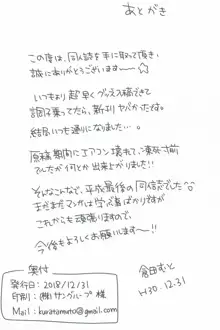 あとがき
この度は、同人誌を手に取って頂き
誠にありがとうございます──☆
いつもより超早くプレス入稿できて
調子乗ってたら、新刊ヤバかったよね。
結局いつも通りになりました…。
原稿期間にエアコン壊れて、凍死寸前
でしたが何とか出来上がりました!!
そんなこんなで、平成最後の同人誌でした
まだまだマンガは学ぶ事ばかりですが
これからも頑張りますので
今後もよろしくお願いします──!!
奥付
発行日: 2018/12/31
印刷: (株)サングループ 様
Mail: kuratamuto@gmail.com
倉田むと
H30.12.31